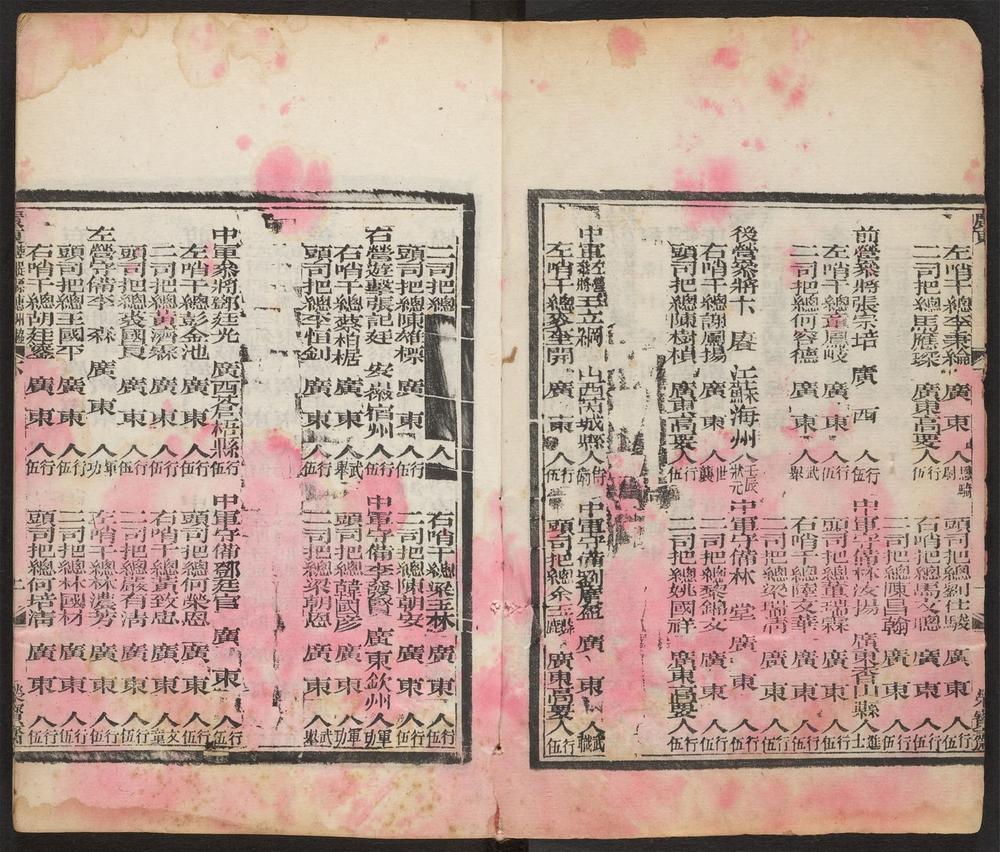 左哨千總李秉綸　廣東人恩騎尉　頭司把總劉仕駿　廣東人行伍
二司把總馬應琛　廣東高要人行伍　右哨千總馮文聰　廣東人行伍
二司把總陳昌翰　廣東人行伍
前營叅將張宗培　廣西人行伍　中軍守備林汝揚　廣東香山縣人進士
左哨千總董鳳岐　廣東人行伍　頭司把總董瑞霖　廣東人行伍
二司把總何容德　廣東人武舉　右哨千總陸文華　廣東人行伍
二司把總梁瑞清　廣東人行伍
後營叅將卞　江蘇海州人壬辰狀元　中軍守備林　堂　廣東人行伍
右哨千總謝鳳揚　廣東人世襲　二司把總蔡錦文　廣東人行伍
頭司把總陳樹楨　廣東高要人行伍　二司把總姚國祥　廣東高要人行伍
中軍王立綱　山西芮城縣人侍衛　中軍守備劉廣盈　廣東人武職
左哨千總麥奎開　廣東人行伍　頭司把總余　廣東高要人行伍
二司把總　右哨千總梁玉林　廣東人行伍
頭司把總陳雄標　廣東人行伍　二司把總陳朝安　廣東人行伍
右營遊擊張記廷　安徽宿州人行伍　中軍守備李發賢　廣東欽州人軍功
右哨千總蔡栢椐　廣東人武舉　頭司把總韓國彥　廣東人軍功
頭司把總李恒釗　廣東人行伍　二司把總梁朝恩　廣東人武舉
中軍叅將鄧廷光　廣西蒼梧縣人行伍　中軍守備鄧廷官　廣東人行伍
左哨千總彭金池　廣東人行伍　頭司把總何榮恩　廣東人行伍
二司把總黃濟霖　廣東人行伍　右哨千總黃致忠　廣東人文童
頭司把總裘國良　廣東人行伍　二司把總嚴有清　廣東人行伍
左營守備李　森　廣東人軍功　左哨千總林濃芳　廣東人行伍
頭司把總王國平　廣東人行伍　二司把總林國材　廣東人行伍
右哨千總胡廷鎏　廣東人行伍　頭司把總何培清　廣東人行伍